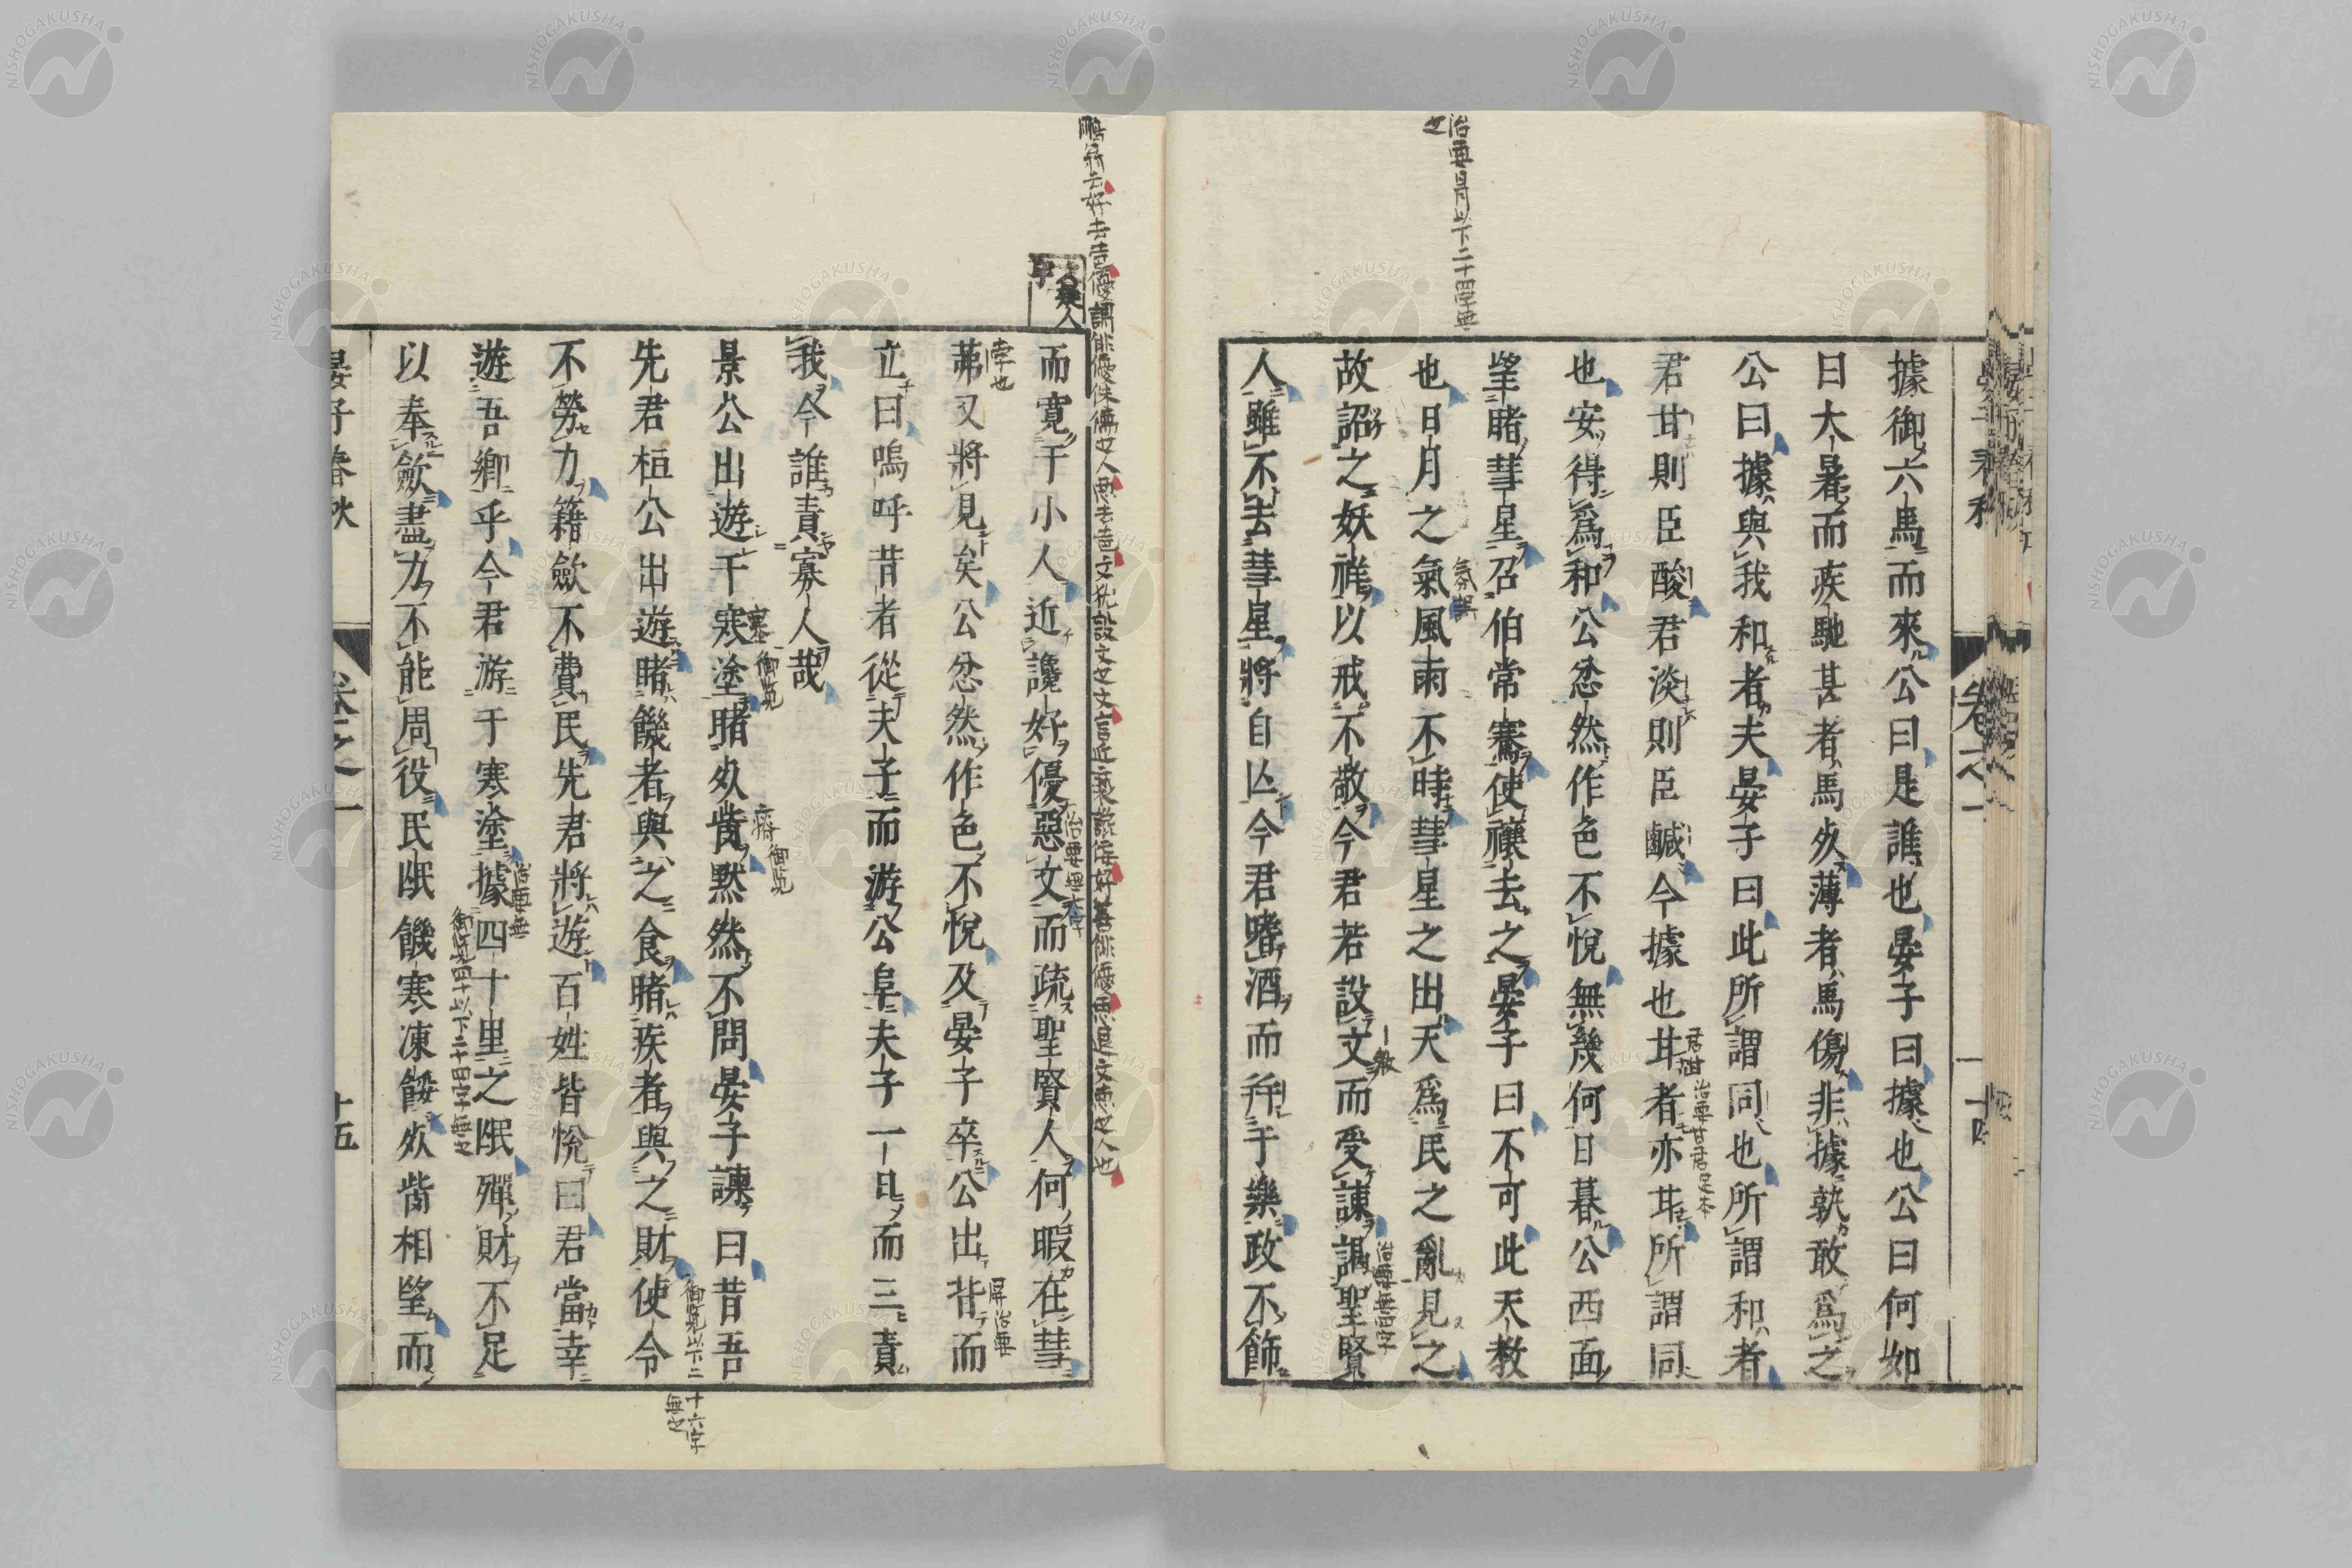 治要日月以下二十四字無
之
據御六馬而來公曰是誰也晏子曰據也公曰何如
曰大暑而疾馳甚者馬死薄者馬傷非據孰敢爲之
公曰據與我和者夫晏子曰此所謂同也所謂和者
君甘則臣酸君淡則臣鹹今據也甘者亦甘所謂同
也安得爲和公忿然作色不悅無幾何日暮公西面
望睹彗星召伯常騫使禳去之晏子曰不可此天教
也日月之氣風雨不時彗星之出天爲民之亂見之
故詔之妖祥以戒不敬今君若設文而受諫謁聖賢
人雖不去彗星將自亡今君嗜酒而并于樂政不飾
而寬于小人近讒好優惡文而疏聖賢人何暇在彗
茀又將見矣公忿然作色不悅及晏子卒公出背而
立曰嗚呼昔者從夫子而游公阜夫子一日而三責
我今誰責寡人哉
景公出遊于寒塗睹死胔默然不問晏子諫曰昔吾
先君桓公出遊睹饑者與之食睹疾者與之財使令
不勞力籍歛不費民先君將遊百姓皆悅曰君當幸
遊吾鄉乎今君游于寒塗據四十里之氓殫財不足
以奉歛盡力不能周役民氓饑寒凍餒死胔相望而
晏子春秋
卷之一
十五
孛也
屏治要
治要無
御覽四十以下二十四字無之
御覽以下二
十六字
無之
治要無言字
君甘
治要甘君足本
NISHOGAKUSHA